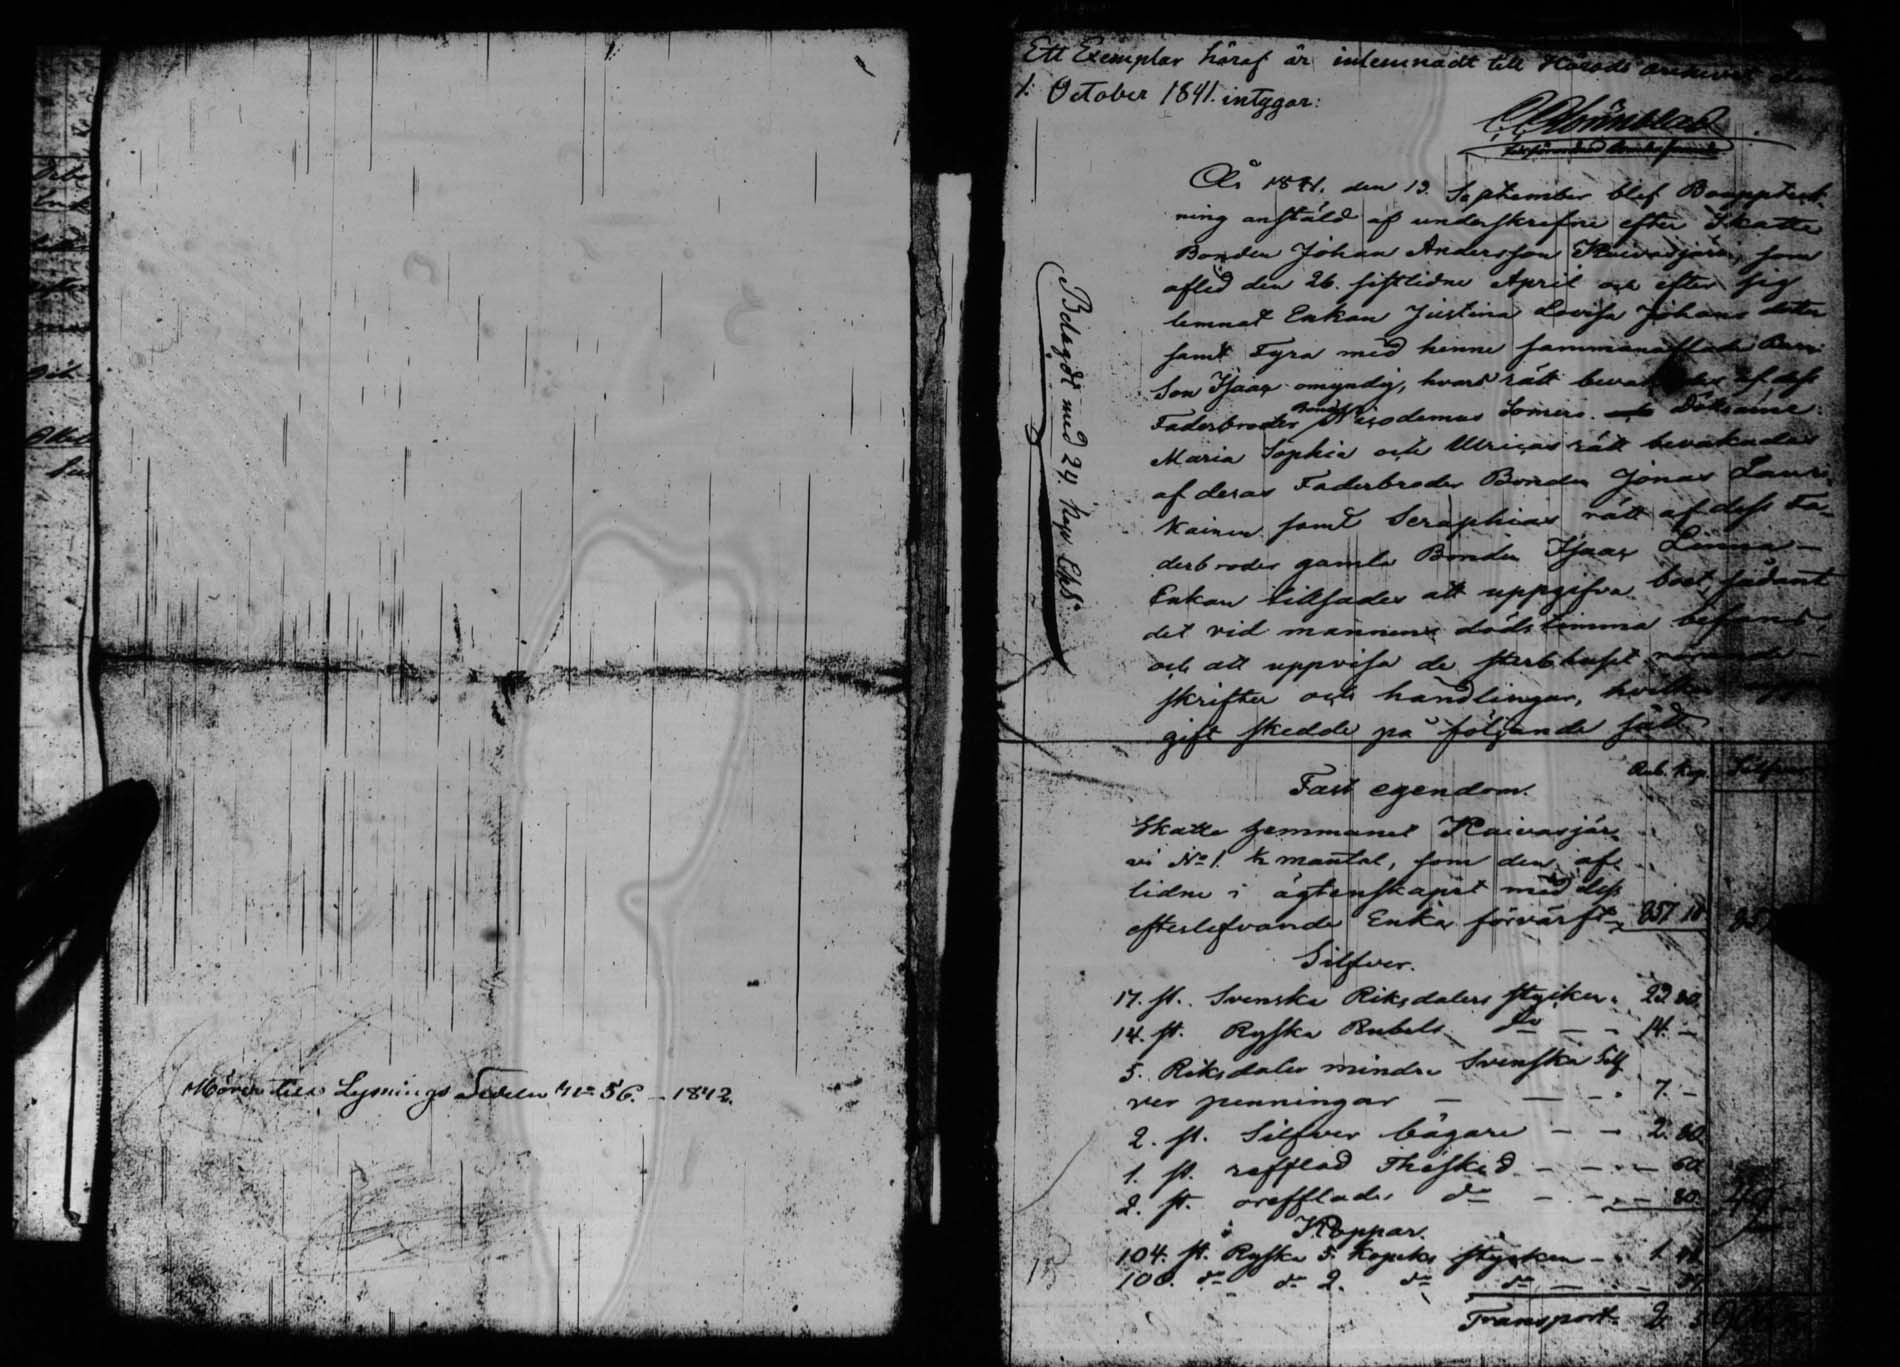 Hörer till Lysnings Sedeln No 56. – 1842.
Ett Exemplar häraf är inlemnadt till Härads archivet den
1. October 1841. intygar:
År 1841. den 13. September blef Bouppteck-
ning anstäld af underskrefne efter Skatte
Bonden Johan Andersson Kaivasjärvi, som
afled den 26. sistlidne April och efter sig
lemnat Enkan Justina Lovisa Johans dotter
samt Fyra med henne sammanaflade Barn:
Son Isaac omyndig, hvars rätt bevakades af dess
Faderbroder Bonden Nicodemus Somero. Döttrarne
Maria Sophia och Ulricas rätt bevakades
af deras Faderbroder Bonden Jonas Lauri
kainen samt Seraphias rätt af dess Fa-
derbroder gamla Bonden Isaac Linna –
Enkan tillsades att uppgifva boet sådant
det vid mannens dödstimma befans
och att uppvisa de sterbhuset rörande
skrifter och handlingar, hvilka
gift skedde på följande sätt
Belagdt med 24. Kop. Chs.
Rub. Kop. Silfver
Fast egendom.
Skatte hemmanet Kaivasjär-
vi No 1. ½ mantal, som den af-
lidne i ägtenskapet med dess
efterlefvande Enka förvärft 857 18
Silfver.
17. st. Svenska Riksdalers stycken 23 80.
14. st. Ryska Rubels do – – 14. –
5. Riksdaler mindre Svenska Silf
ver penningar – – – 7. –
2. st. Silfver bägare – – 2. 80
1. st. refflad Thesked – – – 60.
2. st. orefflade do – – – 80.
Koppar.
104. st. Ryska 5. Kopeks stycken – 1.
100. do do 2. do do –
Transport 2.